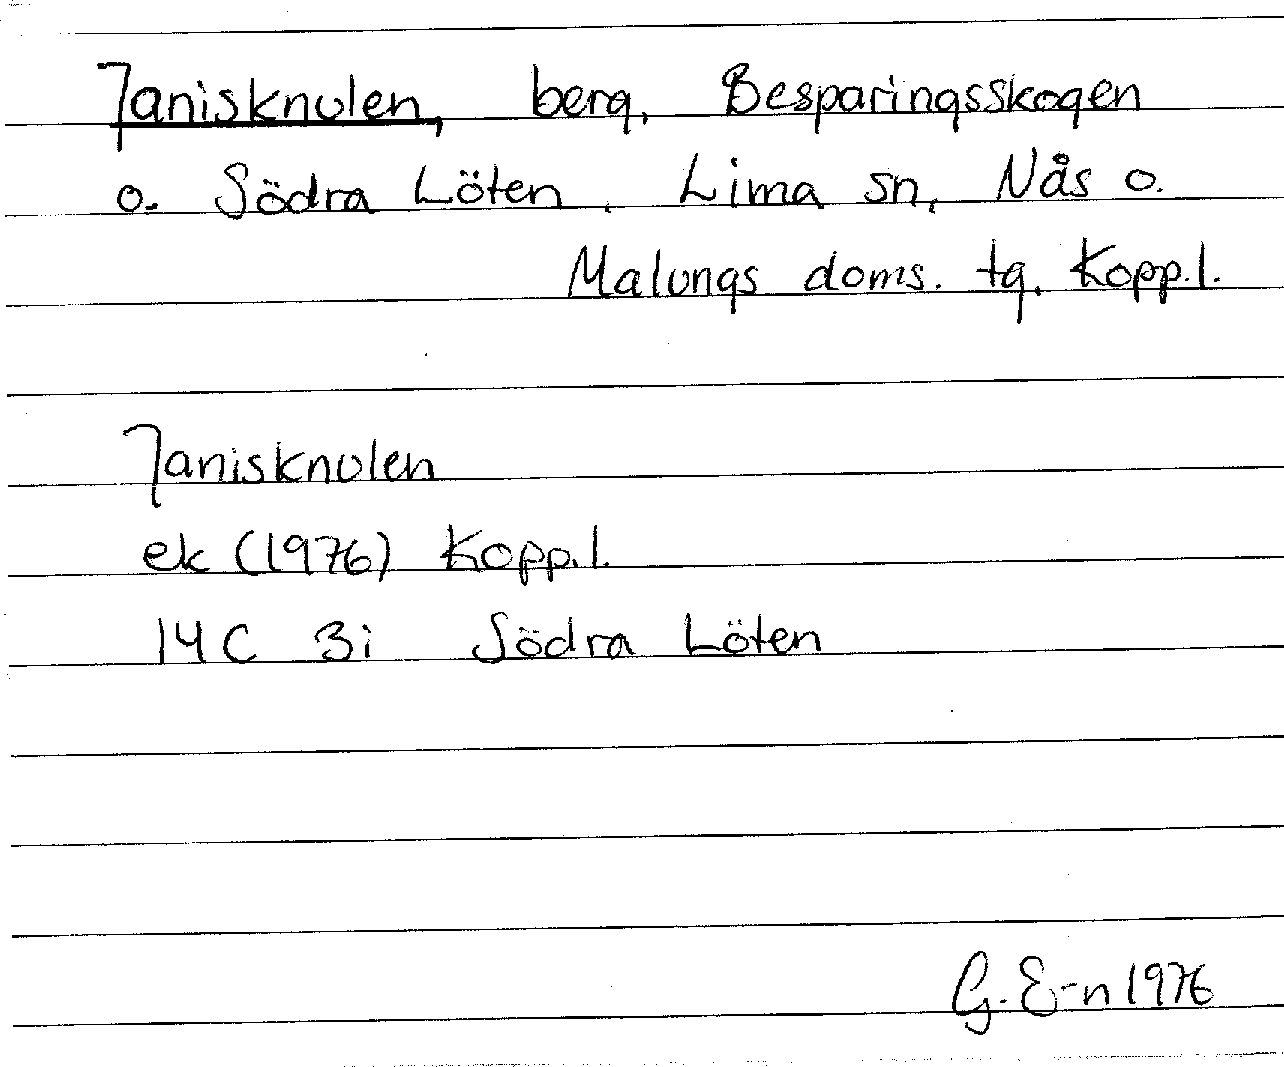 Janisknulen, berg, Besparingsskogen
o. Södra Löten, Lima sn, Nås o.
Malungs doms. tg. Kopp.l.
Janisknulen
ek (1976) Kopp.l.
14C 3i Södra Löten
G. E-n 1976